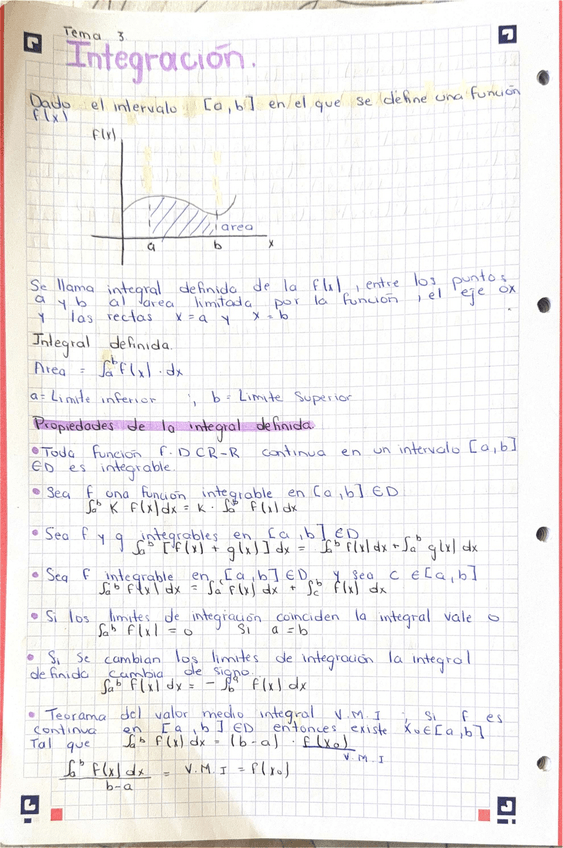 Tema 3.
Integración.
Dado el intervalo [a,b] en el que se define una función
f(x)
f(x)
area
a b x
Se llama integral definida de la f(x), entre los puntos
a y b al area limitada por la función, el eje OX
y las rectas x=a y x=b
Integral definida.
Area = ∫ₐᵇ f(x)·dx
a= Limite inferior ; b= Limite Superior
Propiedades de la integral definida.
• Toda función f: D C R-R continua en un intervalo [a,b]
∈D es integrable.
• Sea f una función integrable en [a,b] ∈D
∫ₐᵇ K f(x) dx = K · ∫ₐᵇ f(x) dx
• Sea f y g integrables en [a,b] ∈D
∫ₐᵇ [f(x) + g(x)] dx = ∫ₐᵇ f(x) dx + ∫ₐᵇ g(x) dx
• Sea f integrable en [a,b] ∈D y sea c ∈ [a,b]
∫ₐᵇ f(x) dx = ∫ₐᶜ f(x) dx + ∫꜀ᵇ f(x) dx
• Si los limites de integración coinciden la integral vale 0
∫ₐᵇ f(x) = 0 Si a = b
• Si se cambian los limites de integración la integral
definida cambia de signo.
∫ₐᵇ f(x) dx = - ∫ᵦᵃ f(x) dx
• Teorama del valor medio integral V.M.I ; si f es
continua en [a,b] ∈D entonces existe x₀ ∈ [a,b]
Tal que ∫ₐᵇ f(x) dx = (b-a) · f(x₀)
V.M.I
∫ₐᵇ f(x) dx / b-a = V.M.I = f(x₀)